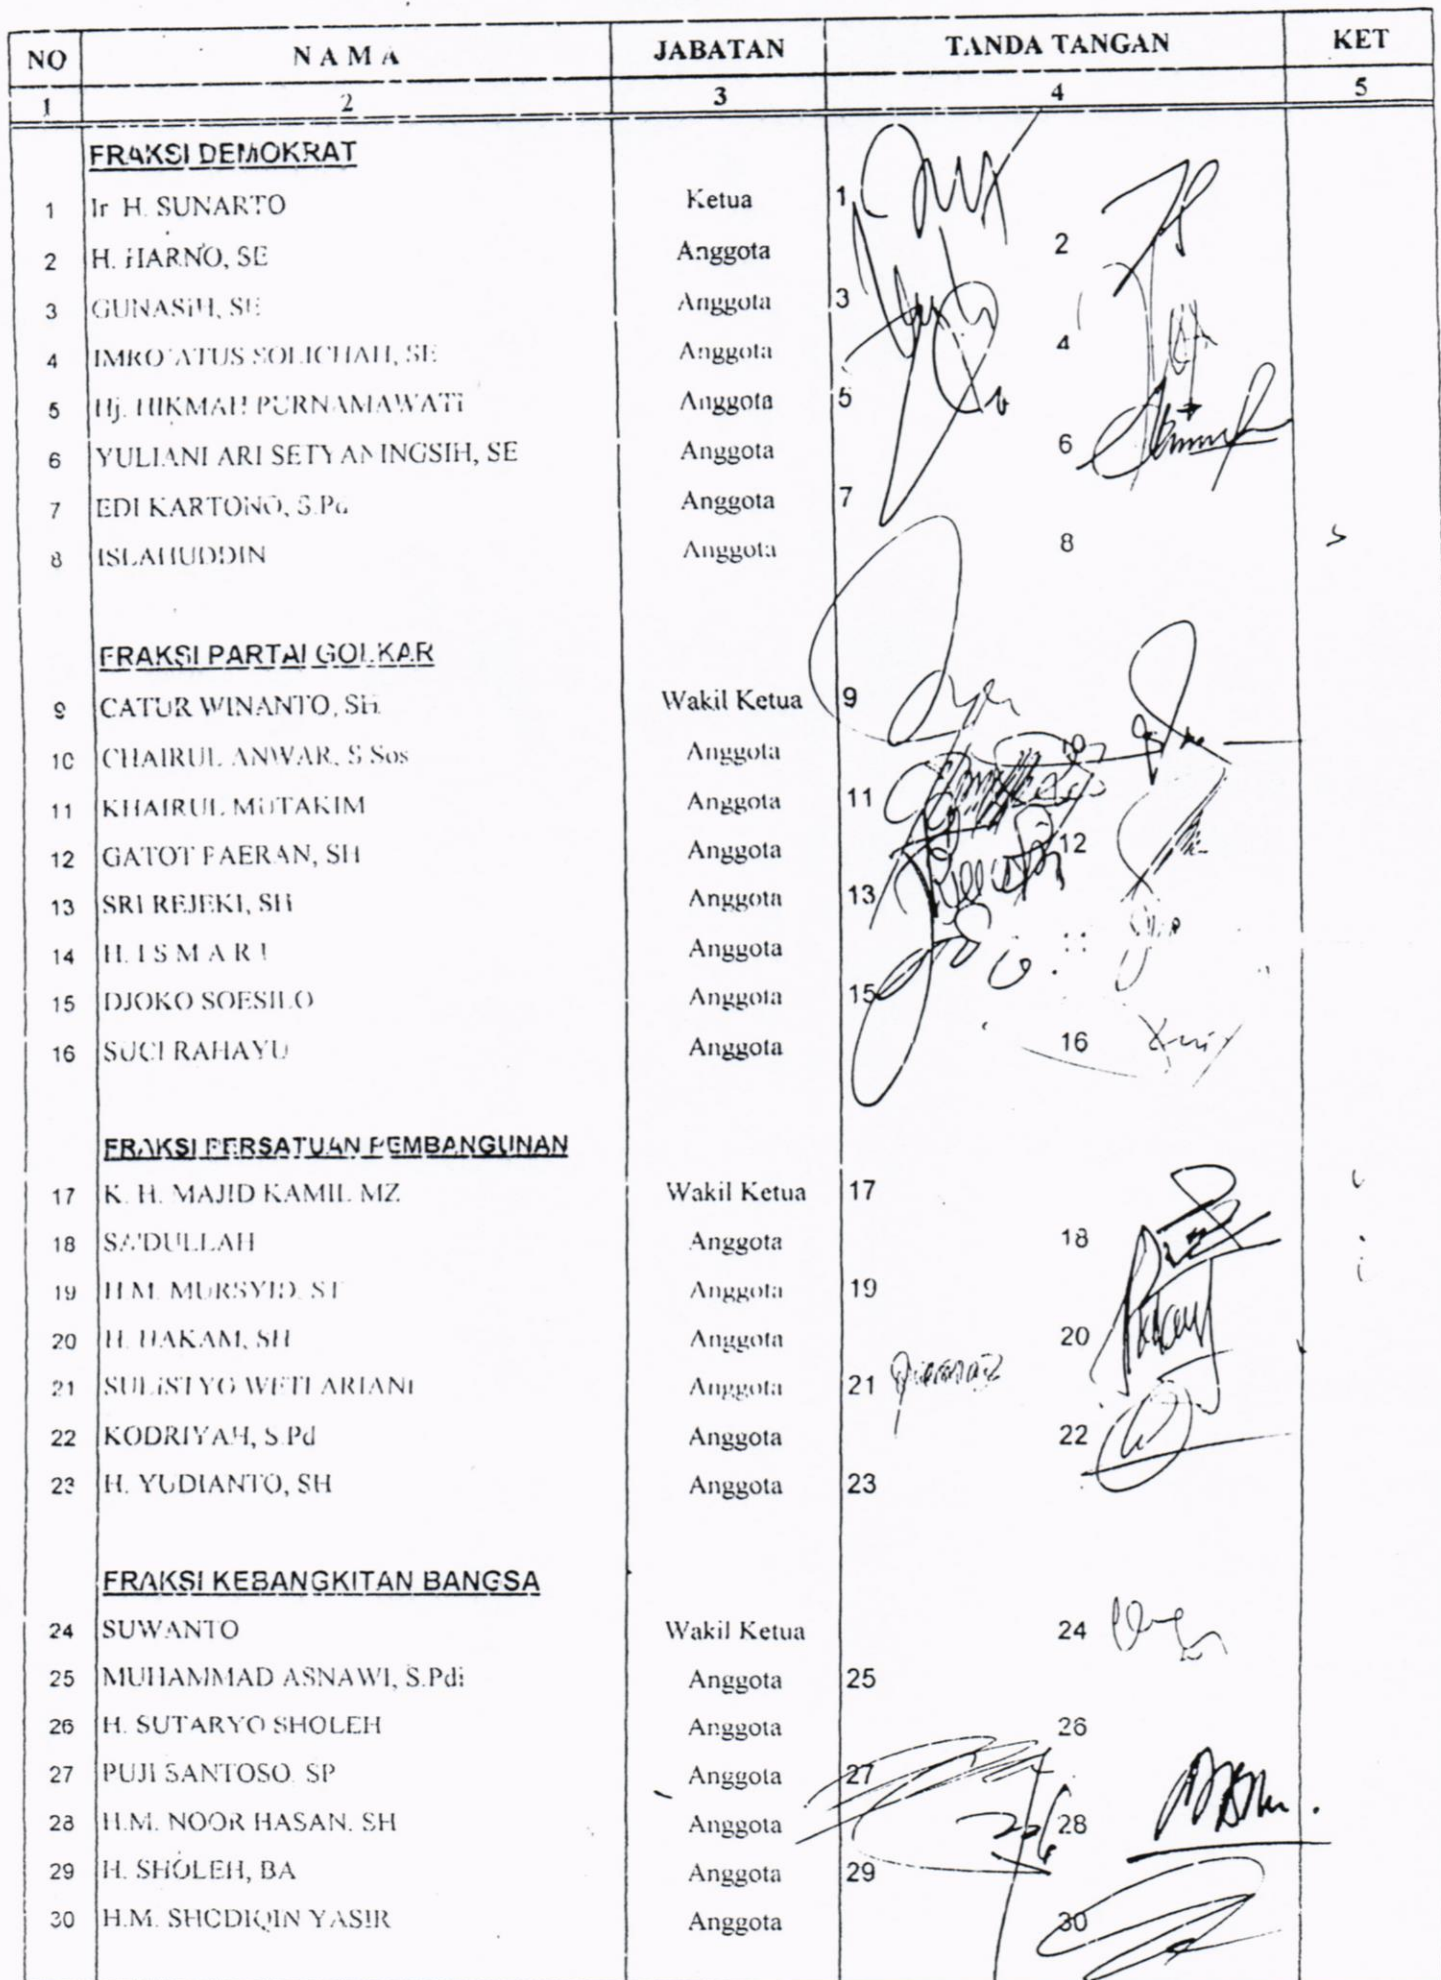 NO NAMA JABATAN TANDA TANGAN KET
1 2 3 4 5
FRAKSI DEMOKRAT
1 Ir H. SUNARTO Ketua 1
2 H. HARNO, SE Anggota 2
3 GUNASIH, SE Anggota 3
4 IMRO'ATUS SOLICHAH, SE Anggota 4
5 Hj. HIKMAH PURNAMAWATI Anggota 5
6 YULIANI ARI SETYANINGSIH, SE Anggota 6
7 EDI KARTONO, S.Pd Anggota 7
8 ISLAHUDDIN Anggota 8
FRAKSI PARTAI GOLKAR
9 CATUR WINANTO, SH. Wakil Ketua 9
10 CHAIRUL ANWAR, S.Sos Anggota 10
11 KHAIRUL MUTAKIM Anggota 11
12 GATOT PAERAN, SH Anggota 12
13 SRI REJEKI, SH Anggota 13
14 H. I S M A R I Anggota
15 DJOKO SOESILO Anggota 15
16 SUCI RAHAYU Anggota 16
FRAKSI PERSATUAN PEMBANGUNAN
17 K. H. MAJID KAMIL MZ Wakil Ketua 17
18 SA'DULLAH Anggota 18
19 H.M. MURSYID, ST Anggota 19
20 H. HAKAM, SH Anggota 20
21 SULISTYO WETI ARIANI Anggota 21
22 KODRIYAH, S.Pd Anggota 22
23 H. YUDIANTO, SH Anggota 23
FRAKSI KEBANGKITAN BANGSA
24 SUWANTO Wakil Ketua 24
25 MUHAMMAD ASNAWI, S.Pdi Anggota 25
26 H. SUTARYO SHOLEH Anggota 26
27 PUJI SANTOSO. SP Anggota 27
28 H.M. NOOR HASAN. SH Anggota 28
29 H. SHOLEH, BA Anggota 29
30 H.M. SHODIQIN YASIR Anggota 30